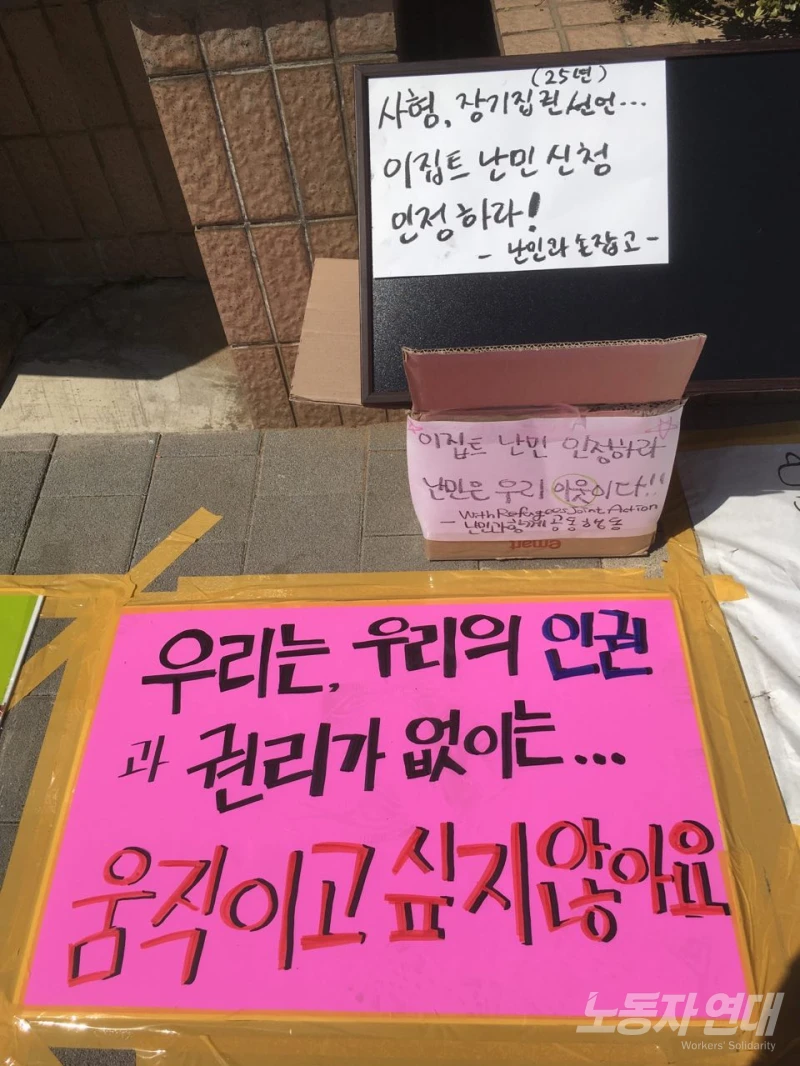 (25년)
사형, 장기집권선언...
이집트 난민 신청
인정하라!
- 난민과 손잡고 -
이집트 난민 인정하라
난민은 우리 이웃이다!!
With Refugees Joint Action
- 난민과함께 공동행동
emart
우리는, 우리의 인권
과 권리가 없이는...
움직이고 싶지않아요
노동자 연대
Workers' Solidarity